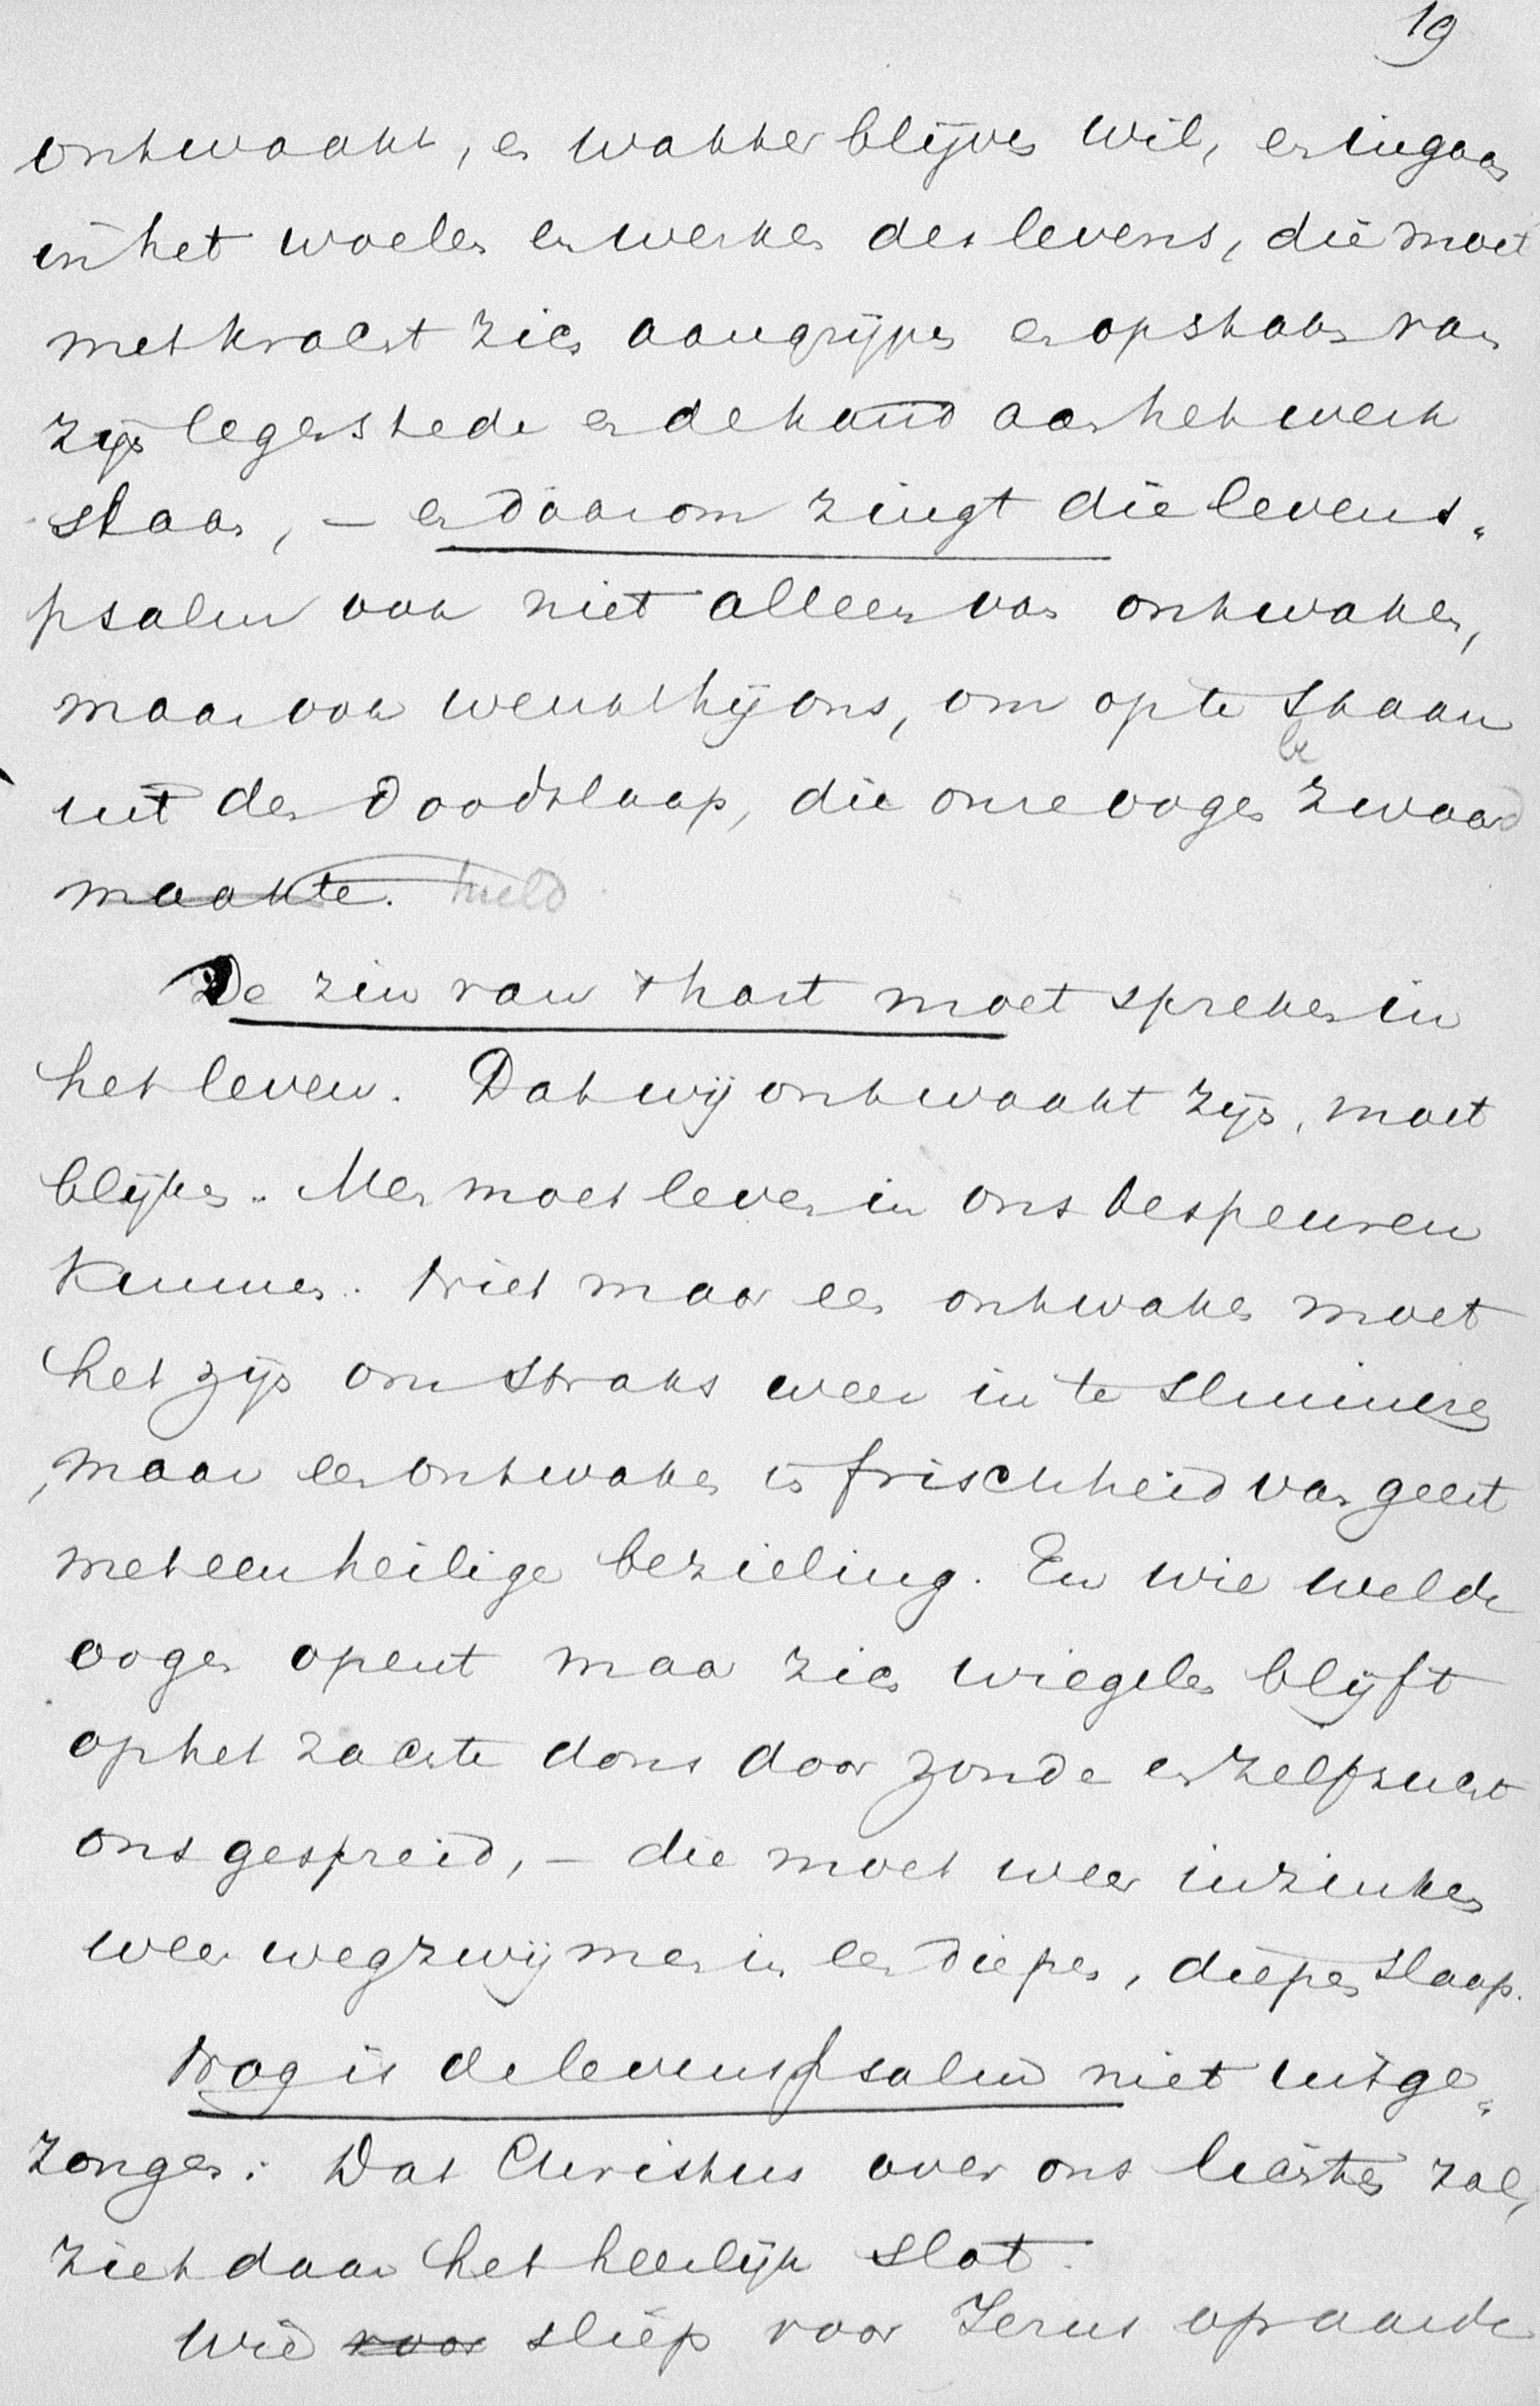 19
ontwaakt, en wakker blijven wil, en ingaan
in het woelen en werken des levens, die moet
met kracht zich aangrijpen en opstaan van
zijn legerstede en de hand aan het werk
slaan, — en daarom zingt die levens„
psalm ook niet alleen van ontwaken,
maar ook wenkt hij ons, om op te staan
uit den doodslaap, die onze oogen bezwaard
maakte. hield
De zin van 't hart moet spreken in
het leven. Dat wij ontwaakt zijn, moet
blijken. Men moet leven in ons bespeuren
kunnen. Niet maar een ontwaken moet
het zijn om straks weer in te sluimeren
, maar een ontwaken is frischheid van geest
met een heilige bezieling. En wie welde
oogen opent maar zich wiegelen blijft
op het zachte dons door zonde en zelfzucht
ons gespreid, — die moet weer inzinken
weer wegzwijmen in een diepen, diepen slaap.
Nog is de levenspsalm niet uitge„
zongen: Dat Christus over ons lichten zal,
ziet daar het heerlijk slot.
Wie voor sliep voor Jezus op aarde